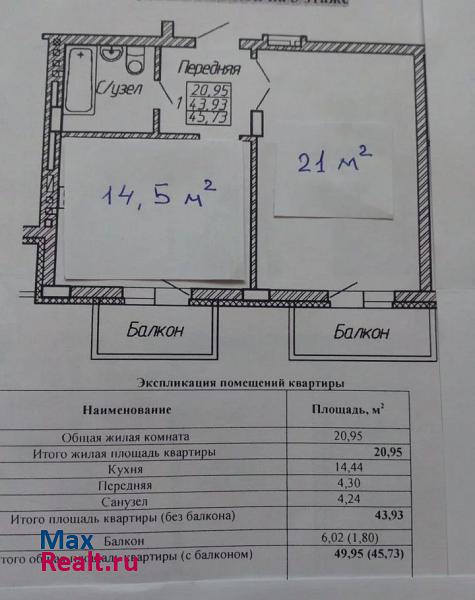 на 3 этаже
Передняя
С/узел
1
20,95
43,93
45,73
14,5 м²
21 м²
Балкон
Балкон
Экспликация помещений квартиры
Наименование Площадь, м²
Общая жилая комната 20,95
Итого жилая площадь квартиры 20,95
Кухня 14,44
Передняя 4,30
Санузел 4,24
Итого площадь квартиры (без балкона) 43,93
Балкон 6,02 (1,80)
площадь квартиры (с балконом) 49,95 (45,73)
Max
Realt.ru